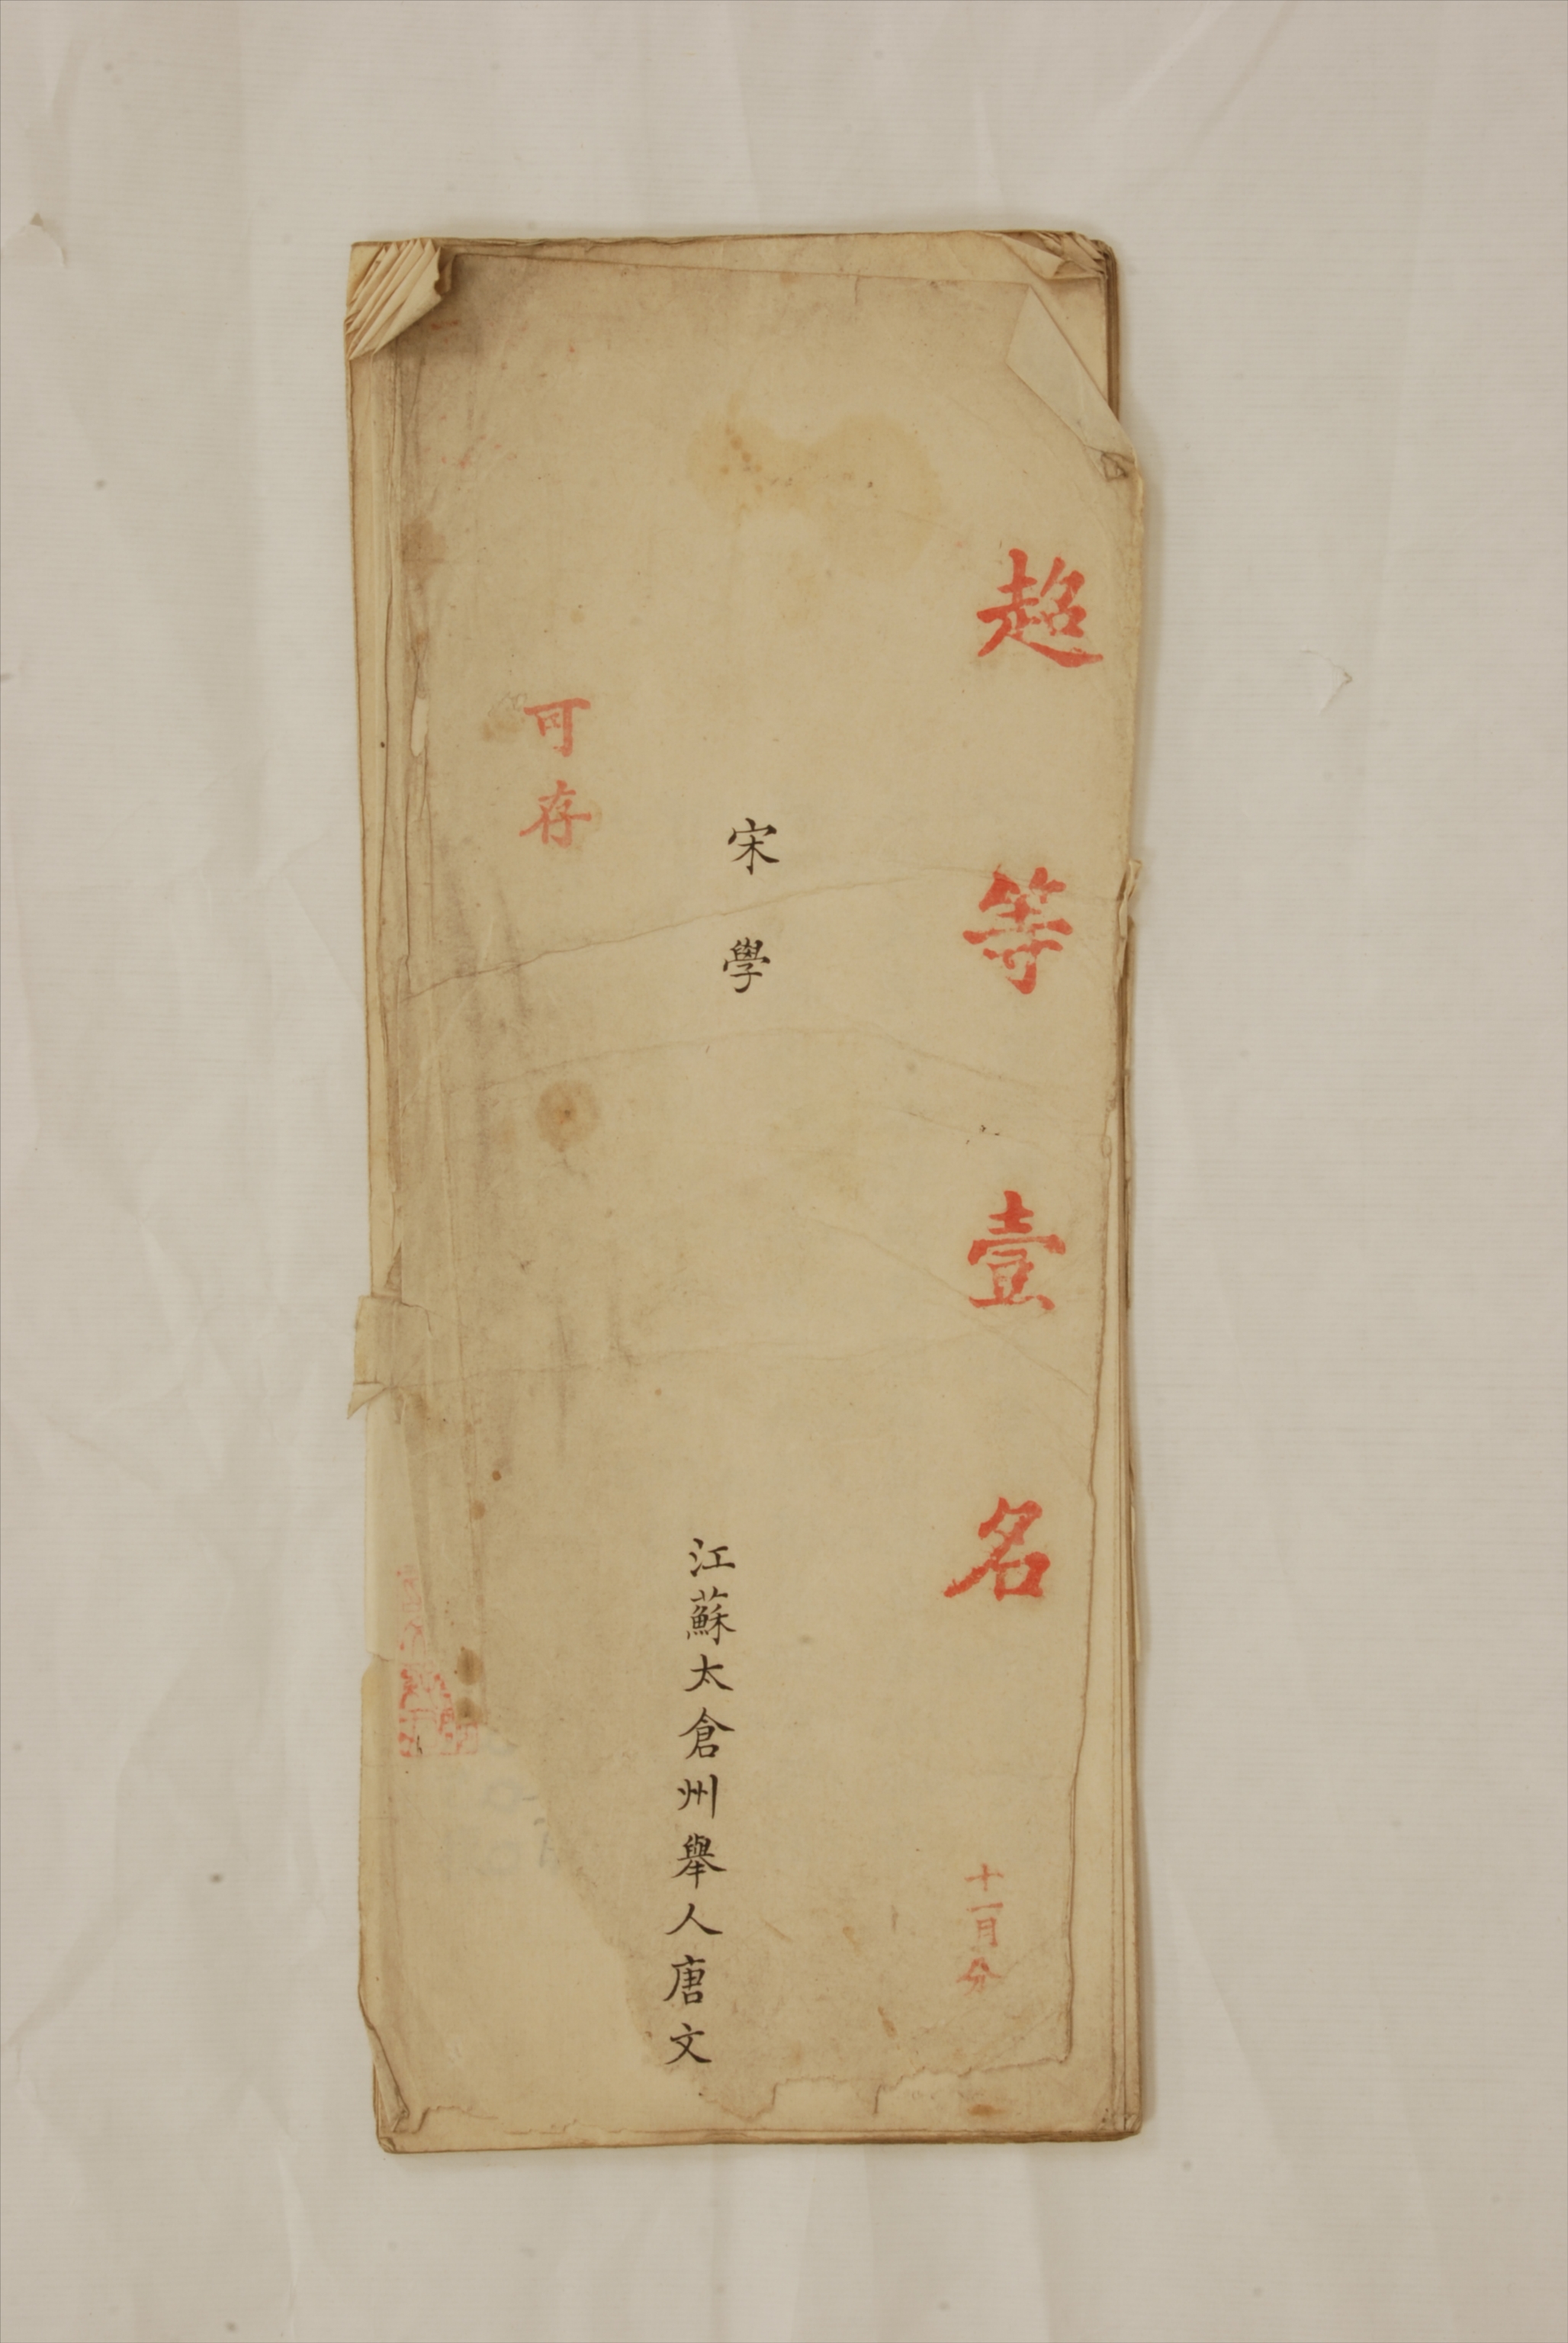 超等壹名
十一月分
宋學
江蘇太倉州舉人唐文
可存